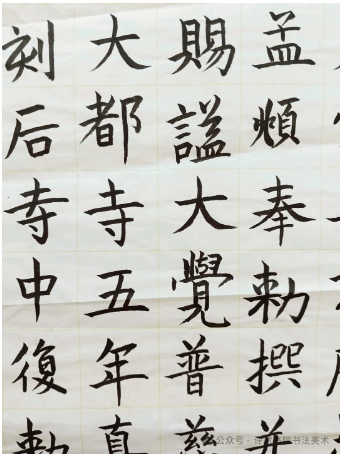 孟頫奉勅撰并
賜謚大覺普慈
大都寺五年真
刻石寺中復勅
公众号 · 院书法美术